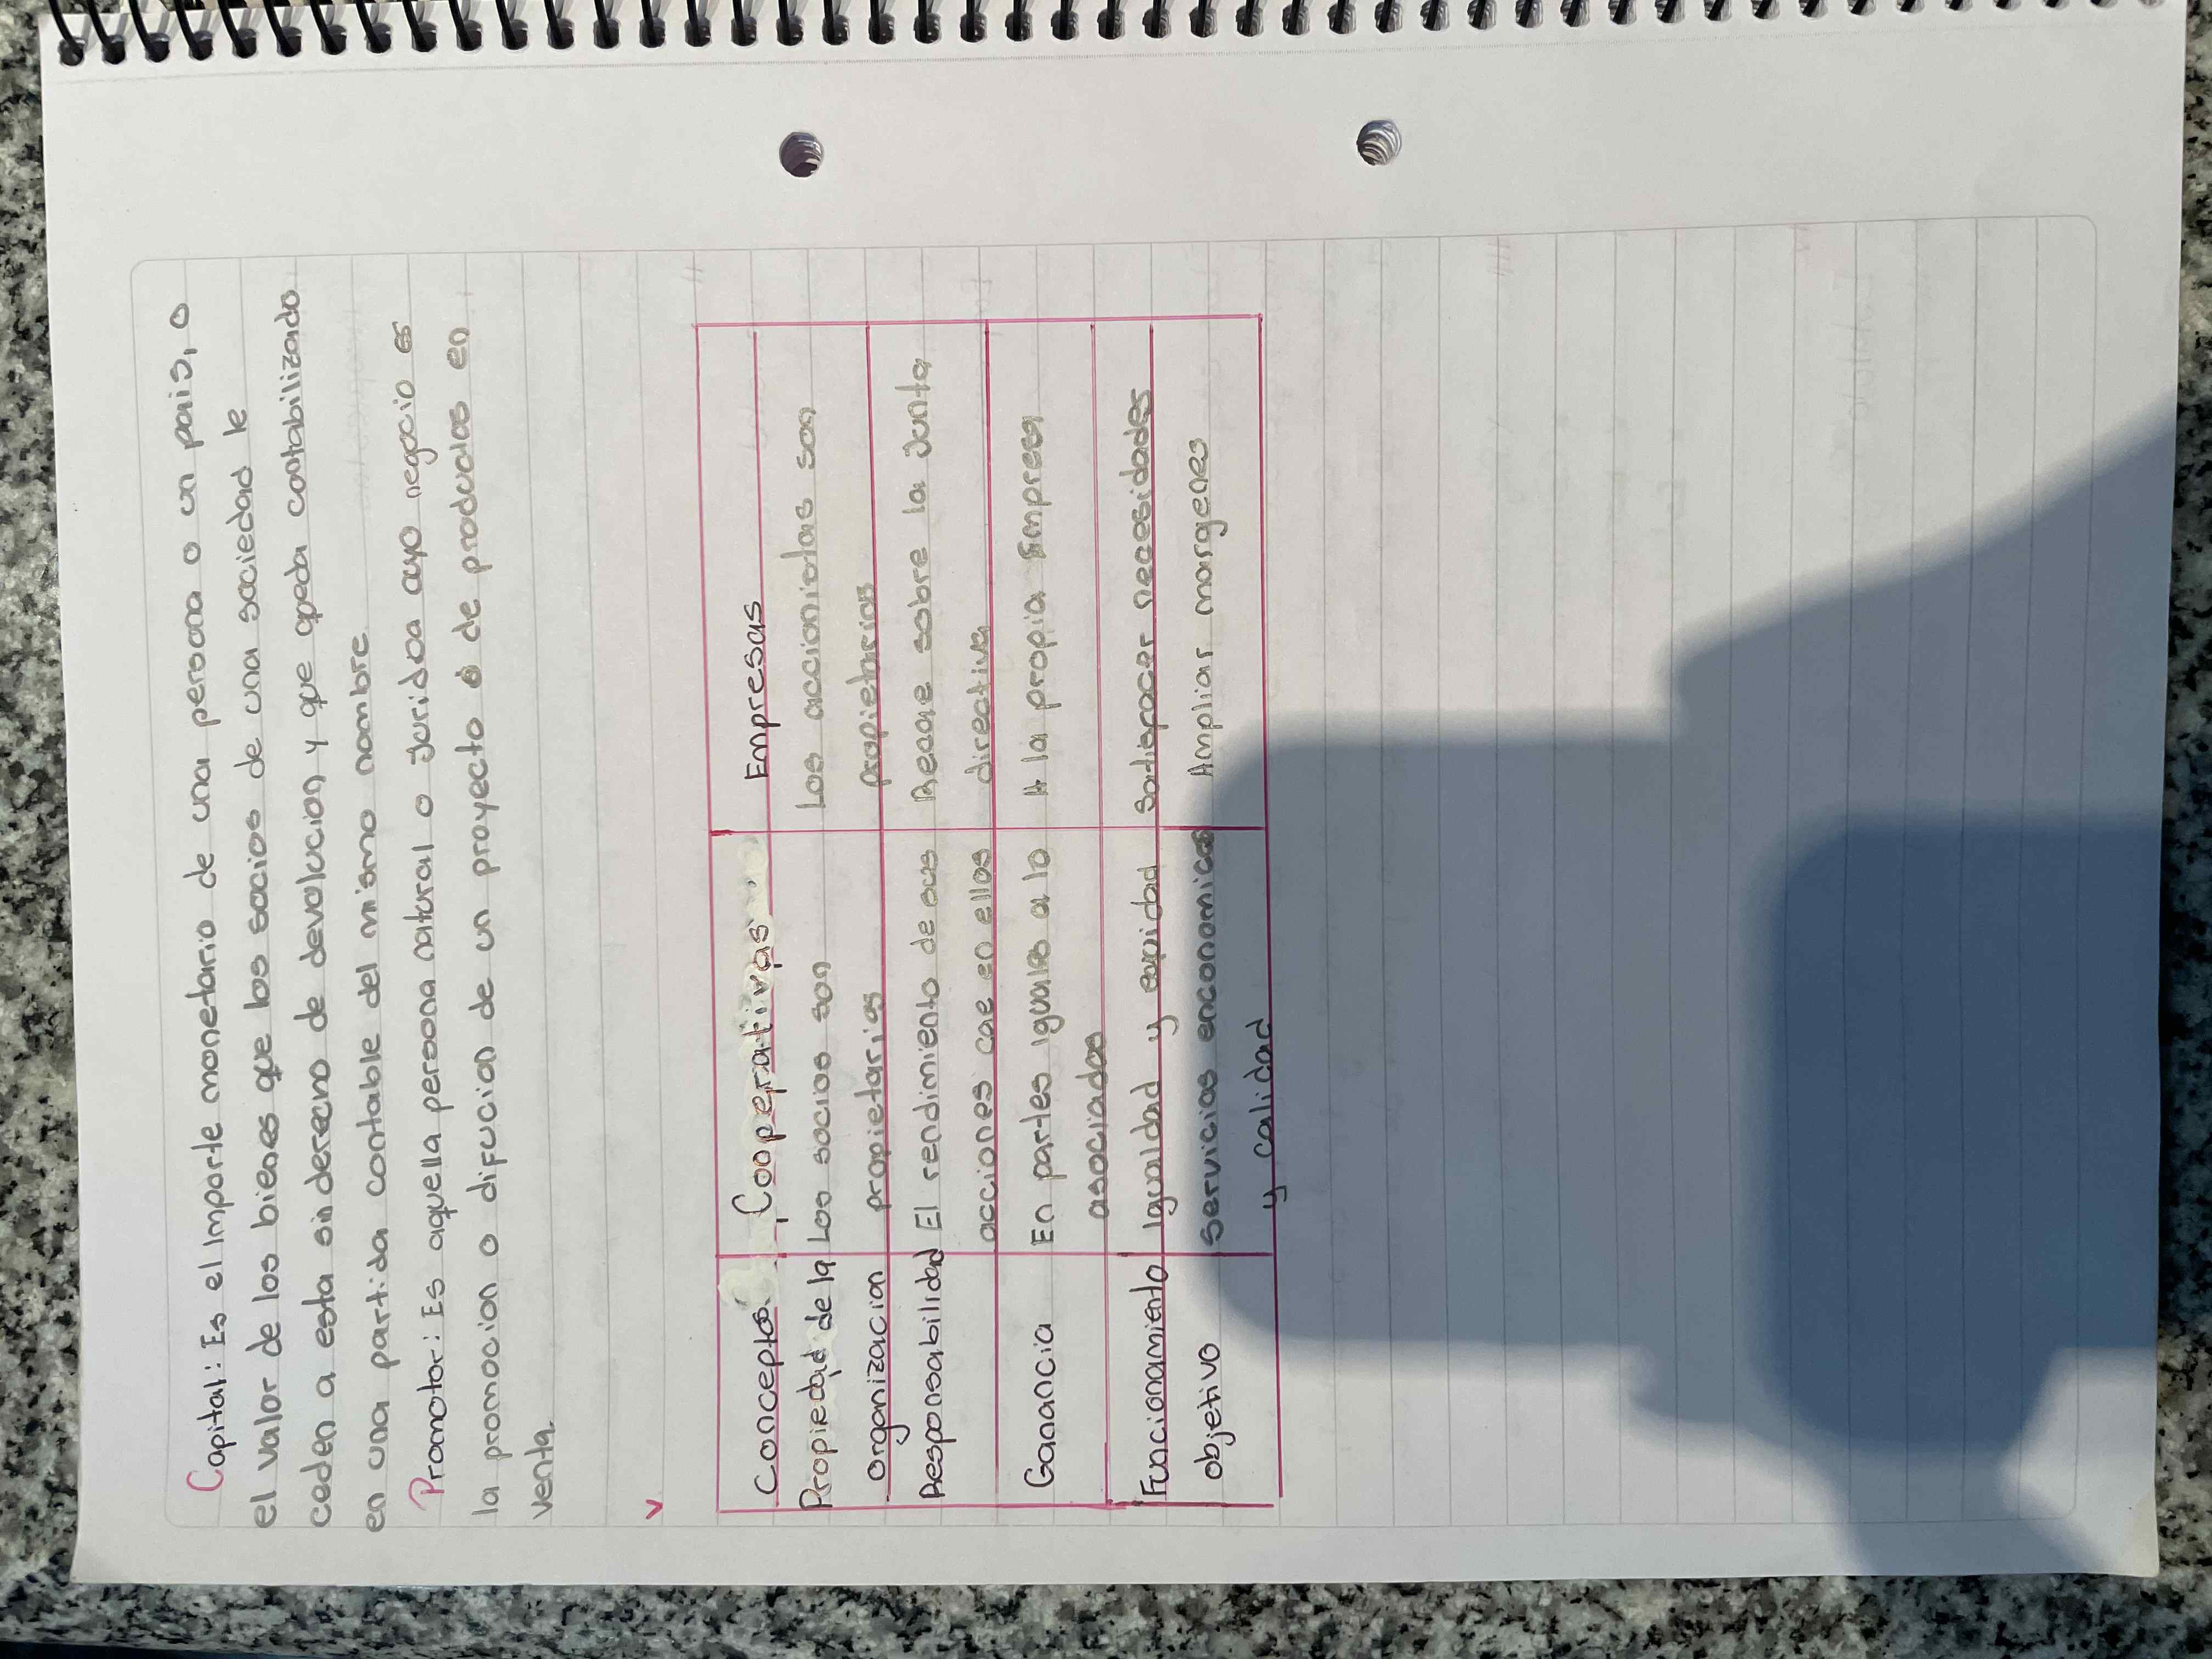 Capital: Es el importe monetario de una persona o un pais, o
el valor de los bienes que los socios de una sociedad le
ceden a esta sin derecho de devolucion y que queda contabilizado
en una partida contable del mismo nombre.
Promotor: Es aquella persona natural o juridica cuyo negocio es
la promocion o difucion de un proyecto o de productos en
venta.
V
Conceptos Cooperativas Empresas
Propiedad de la Los socios son Los accionistas son
organizacion propietarios propietarios
Responsabilidad El rendimiento de sus Recae sobre la Junta
acciones cae en ellos directiva
Ganancia En partes iguales a lo A la propia Empresa
asociados
Funcionamiento Igualdad y equidad Satisfacer necesidades
objetivo Servicios enconomicos Ampliar margenes
y calidad